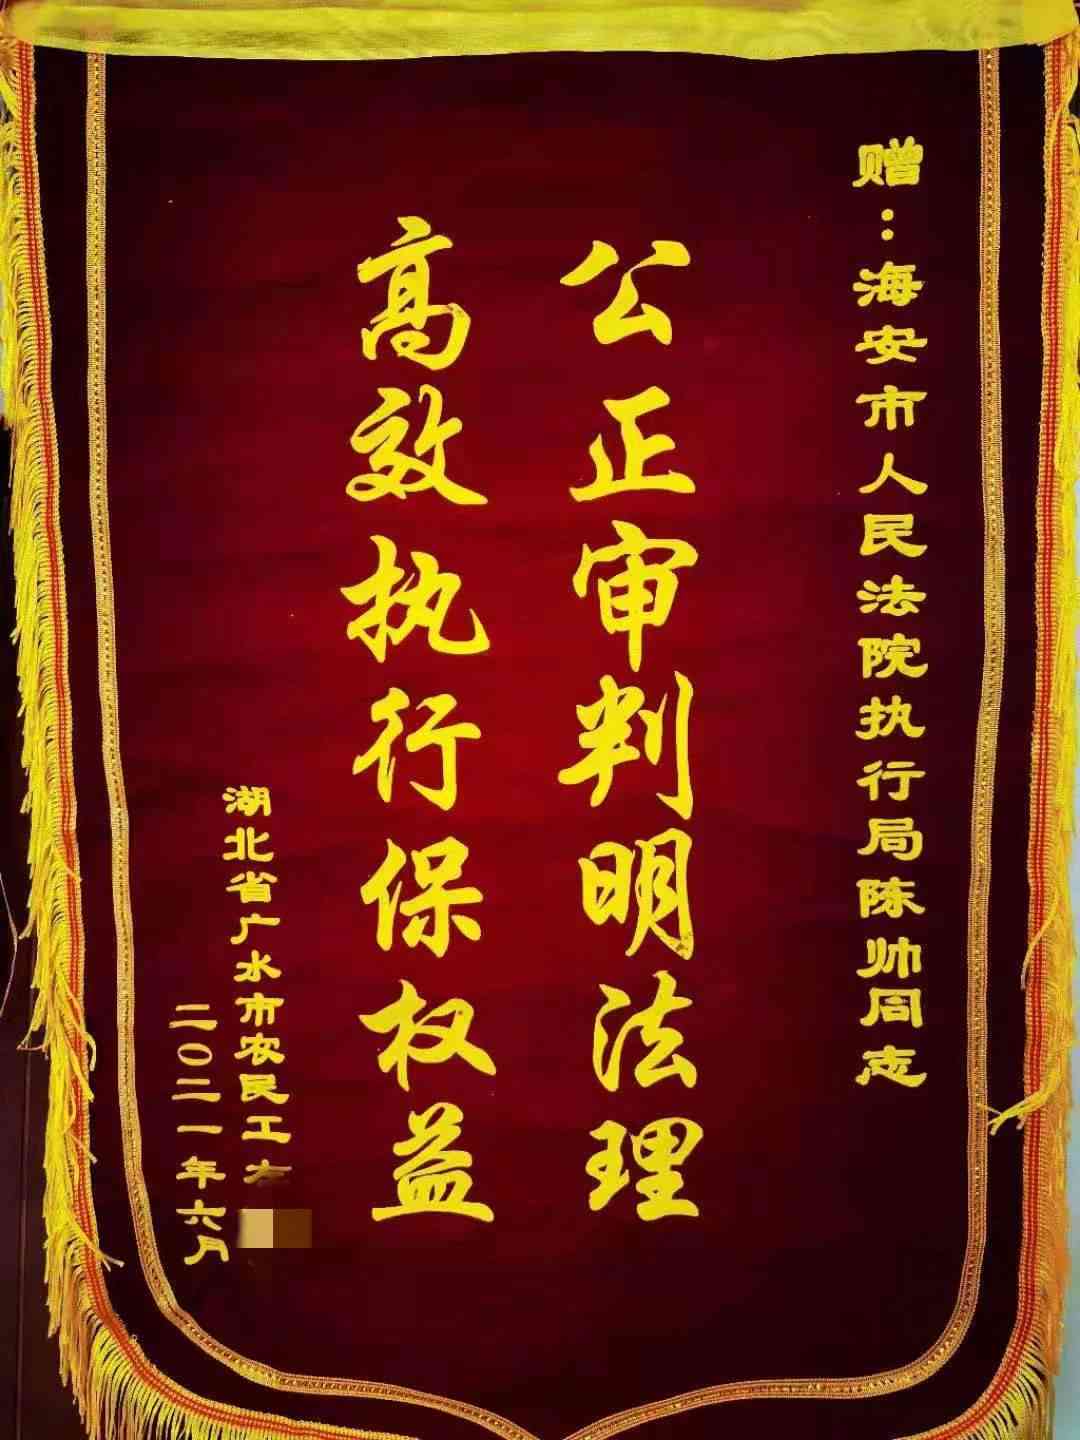 赠：海安市人民法院执行局陈帅同志
公正审判明法理
高效执行保权益
湖北省广水市农民工
二〇二一年六月